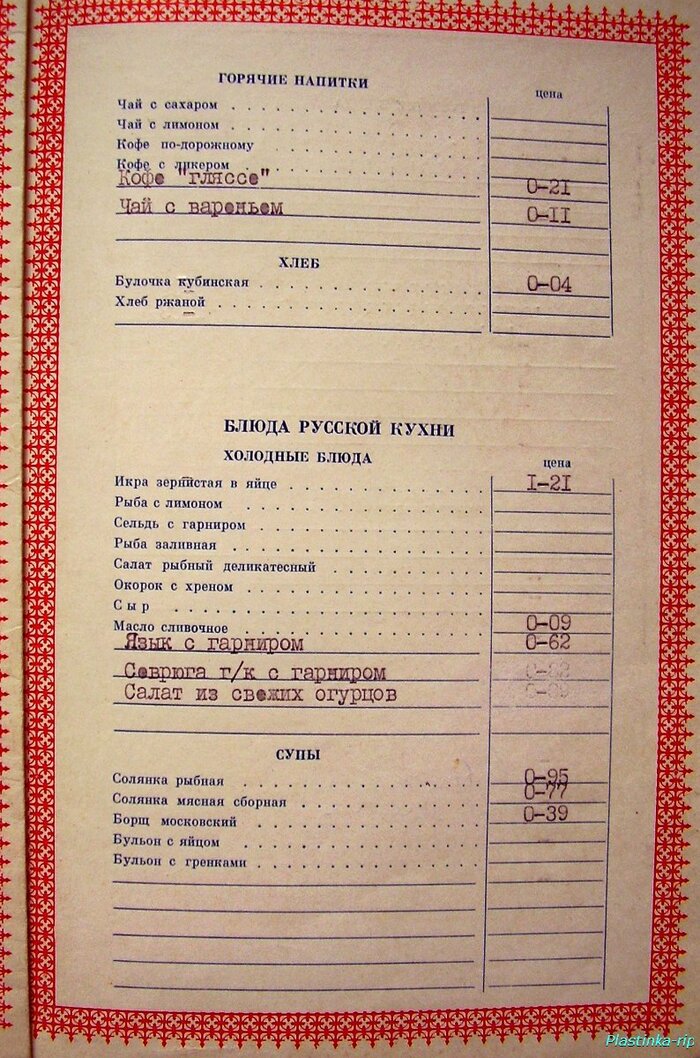 ГОРЯЧИЕ НАПИТКИ
цена
Чай с сахаром
Чай с лимоном
Кофе по-дорожному
Кофе с ликером
Кофе "гляссе" 0-21
Чай с вареньем 0-11
ХЛЕБ
Булочка кубинская 0-04
Хлеб ржаной
БЛЮДА РУССКОЙ КУХНИ
ХОЛОДНЫЕ БЛЮДА
цена
Икра зернистая в яйце I-21
Рыба с лимоном
Сельдь с гарниром
Рыба заливная
Салат рыбный деликатесный
Окорок с хреном
Сыр
Масло сливочное 0-09
Язык с гарниром 0-62
Севрюга г/к с гарниром
Салат из свежих огурцов
СУПЫ
Солянка рыбная 0-95
Солянка мясная сборная 0-77
Борщ московский 0-39
Бульон с яйцом
Бульон с гренками
Plastinka-rip